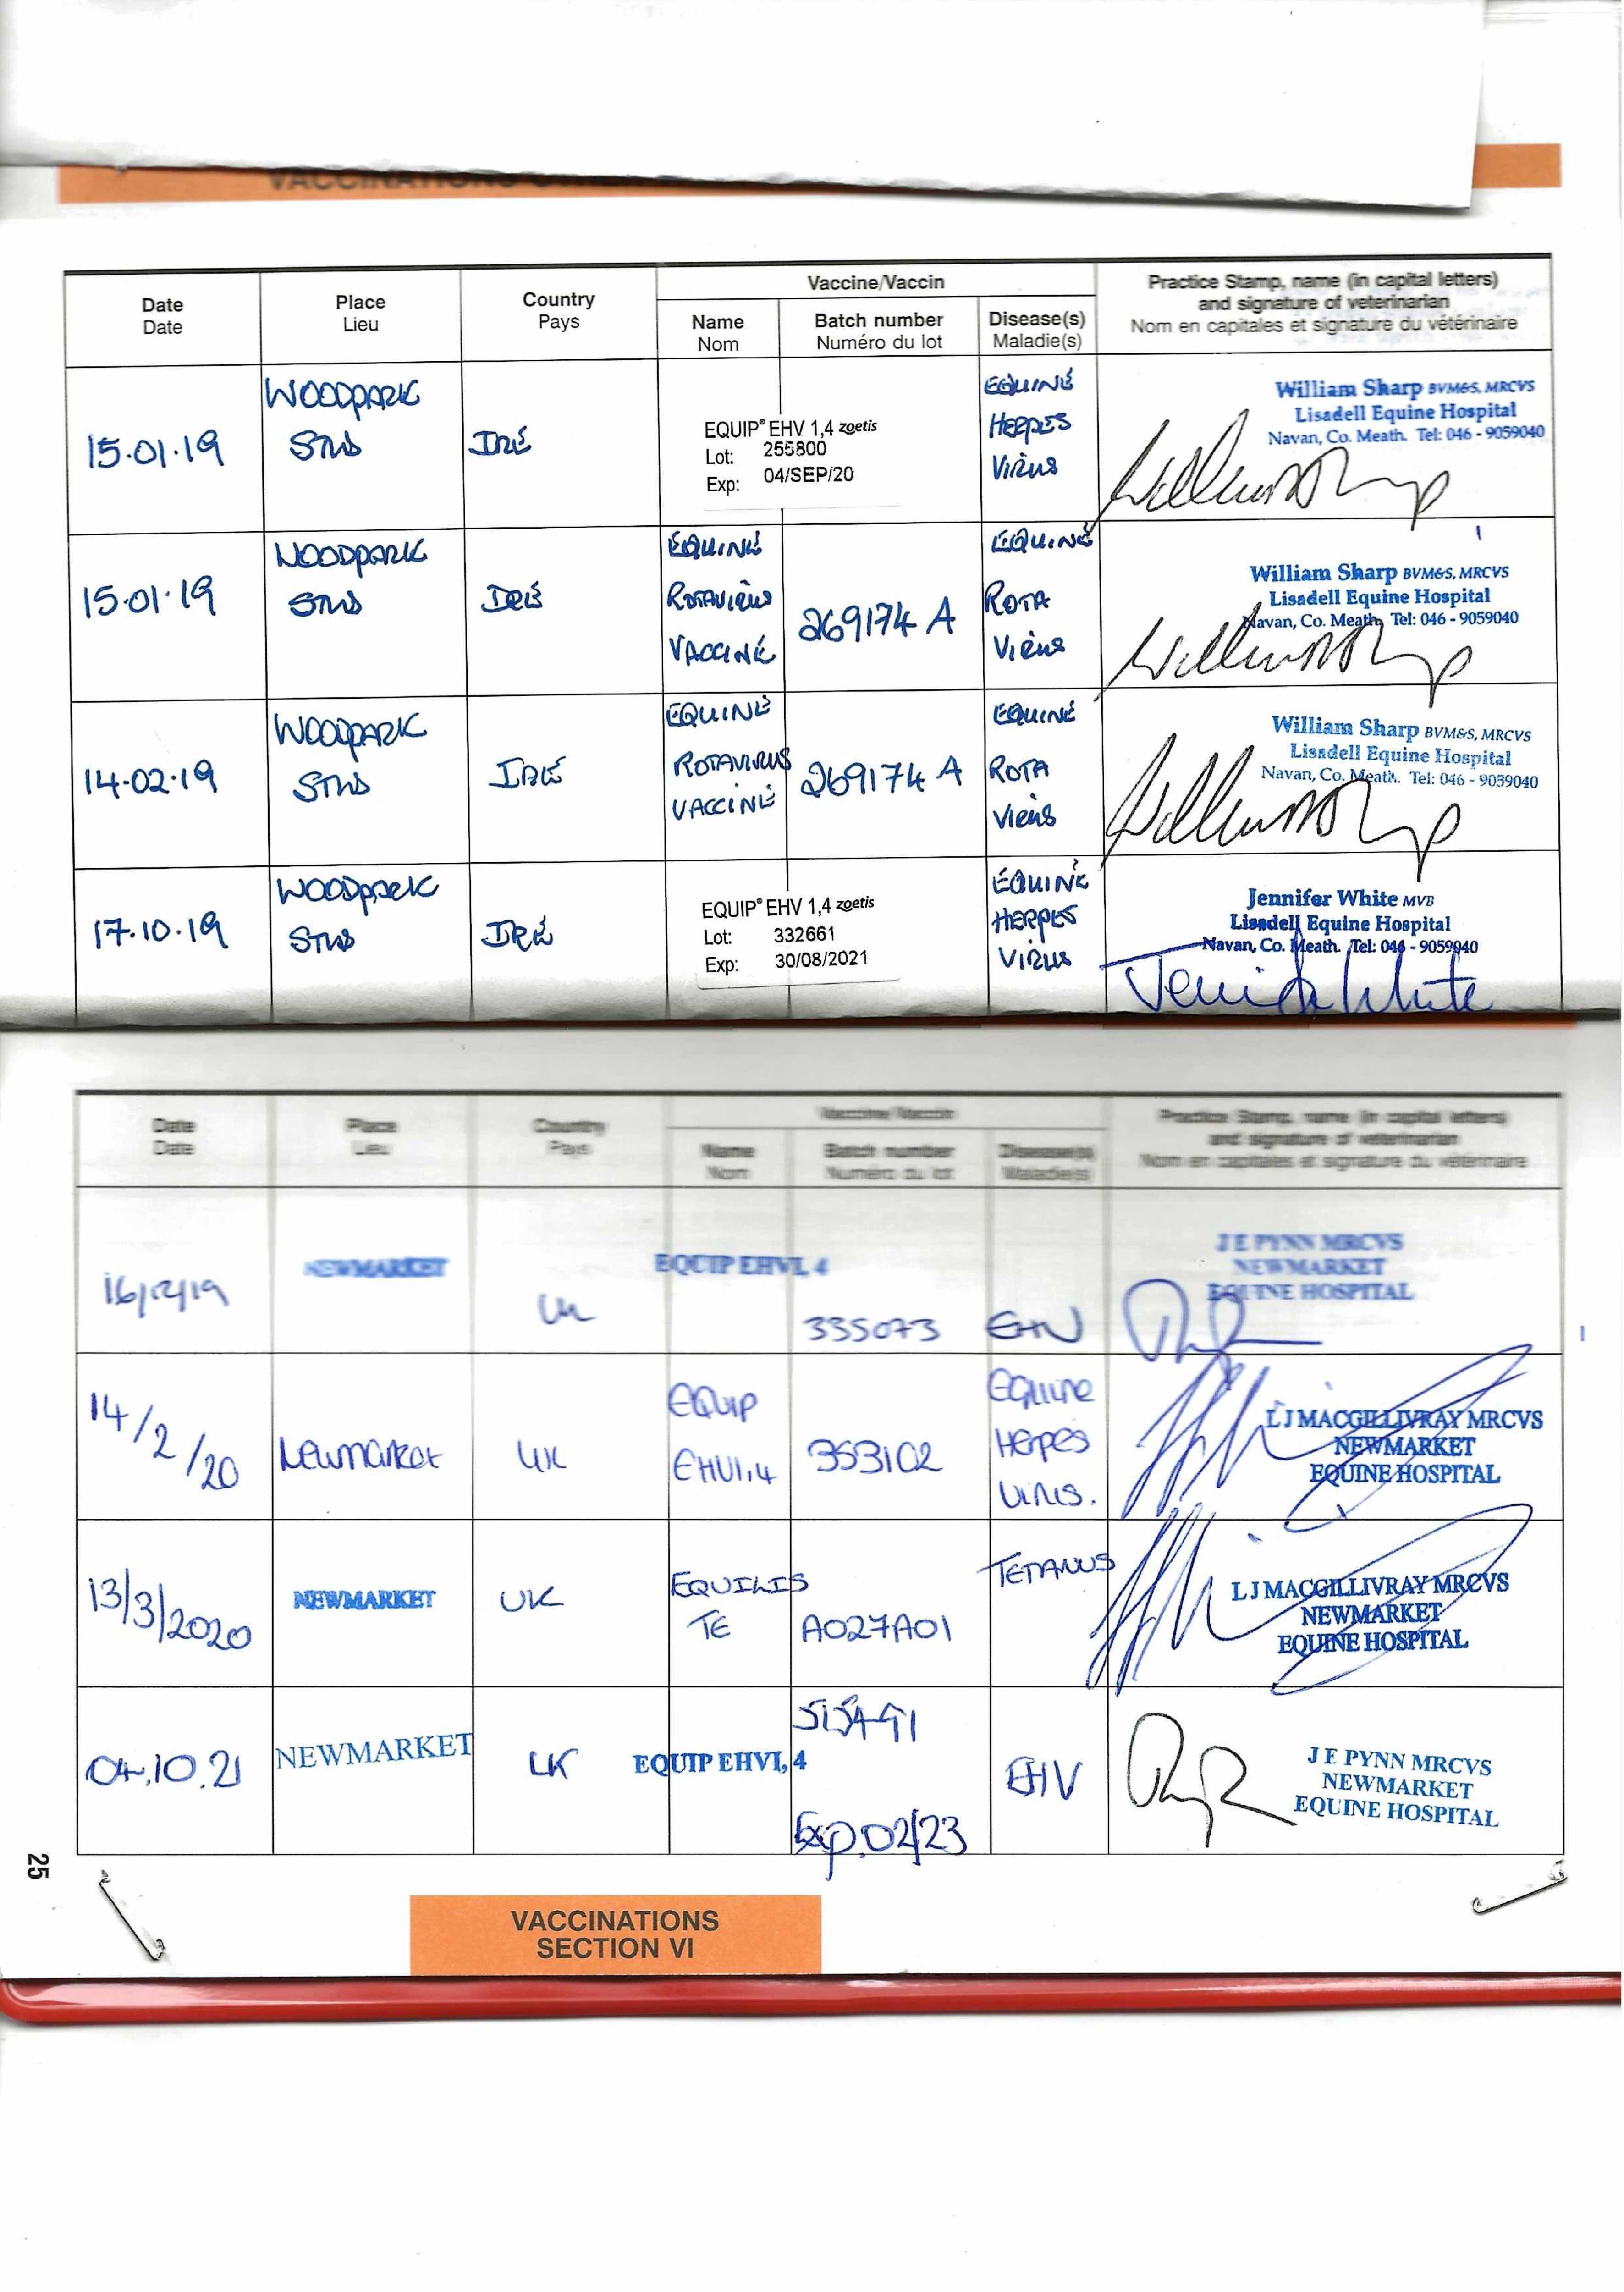 VACCINATIONS
Date
Date
Place
Lieu
Country
Pays
Vaccine/Vaccin
Name
Nom
Batch number
Numéro du lot
Disease(s)
Maladie(s)
Practice Stamp, name (in capital letters)
and signature of veterinarian
Nom en capitales et signature du vétérinaire
15.01.19
WOODPARK
STUD
IRE
EQUIP® EHV 1,4 zoetis
Lot: 255800
Exp: 04/SEP/20
EQUINE
HERPES
VIRUS
William Sharp BVM&S, MRCVS
Lisadell Equine Hospital
Navan, Co. Meath. Tel: 046 - 9059040
15.01.19
WOODPARK
STUD
IRE
EQUINE
ROTAVIRUS
VACCINE
269174 A
EQUINE
ROTA
VIRUS
William Sharp BVM&S, MRCVS
Lisadell Equine Hospital
Navan, Co. Meath. Tel: 046 - 9059040
14.02.19
WOODPARK
STUD
IRE
EQUINE
ROTAVIRUS
VACCINE
269174 A
EQUINE
ROTA
VIRUS
William Sharp BVM&S, MRCVS
Lisadell Equine Hospital
Navan, Co. Meath. Tel: 046 - 9059040
17.10.19
WOODPARK
STUD
IRE
EQUIP® EHV 1,4 zoetis
Lot: 332661
Exp: 30/08/2021
EQUINE
HERPES
VIRUS
Jennifer White MVB
Lisadell Equine Hospital
Navan, Co. Meath. Tel: 046 - 9059040
Jennifer White
Date
Date
Place
Lieu
Country
Pays
Vaccine/Vaccin
Name
Nom
Batch number
Numéro du lot
Disease(s)
Maladie(s)
Practice Stamp, name (in capital letters)
and signature of veterinarian
Nom en capitales et signature du vétérinaire
16/12/19
NEWMARKET
UK
EQUIP EHV1, 4
335073
EHV
J E PYNN MRCVS
NEWMARKET
EQUINE HOSPITAL
14/2/20
Newmarket
UK
EQUIP
EHV1,4
353102
Equine
Herpes
Virus.
L J MACGILLIVRAY MRCVS
NEWMARKET
EQUINE HOSPITAL
13/3/2020
NEWMARKET
UK
EQUILIS
TE
A027A01
TETANUS
L J MACGILLIVRAY MRCVS
NEWMARKET
EQUINE HOSPITAL
04.10.21
NEWMARKET
UK
EQUIP EHV1, 4
Exp.02/23
EHV
J E PYNN MRCVS
NEWMARKET
EQUINE HOSPITAL
25
VACCINATIONS
SECTION VI